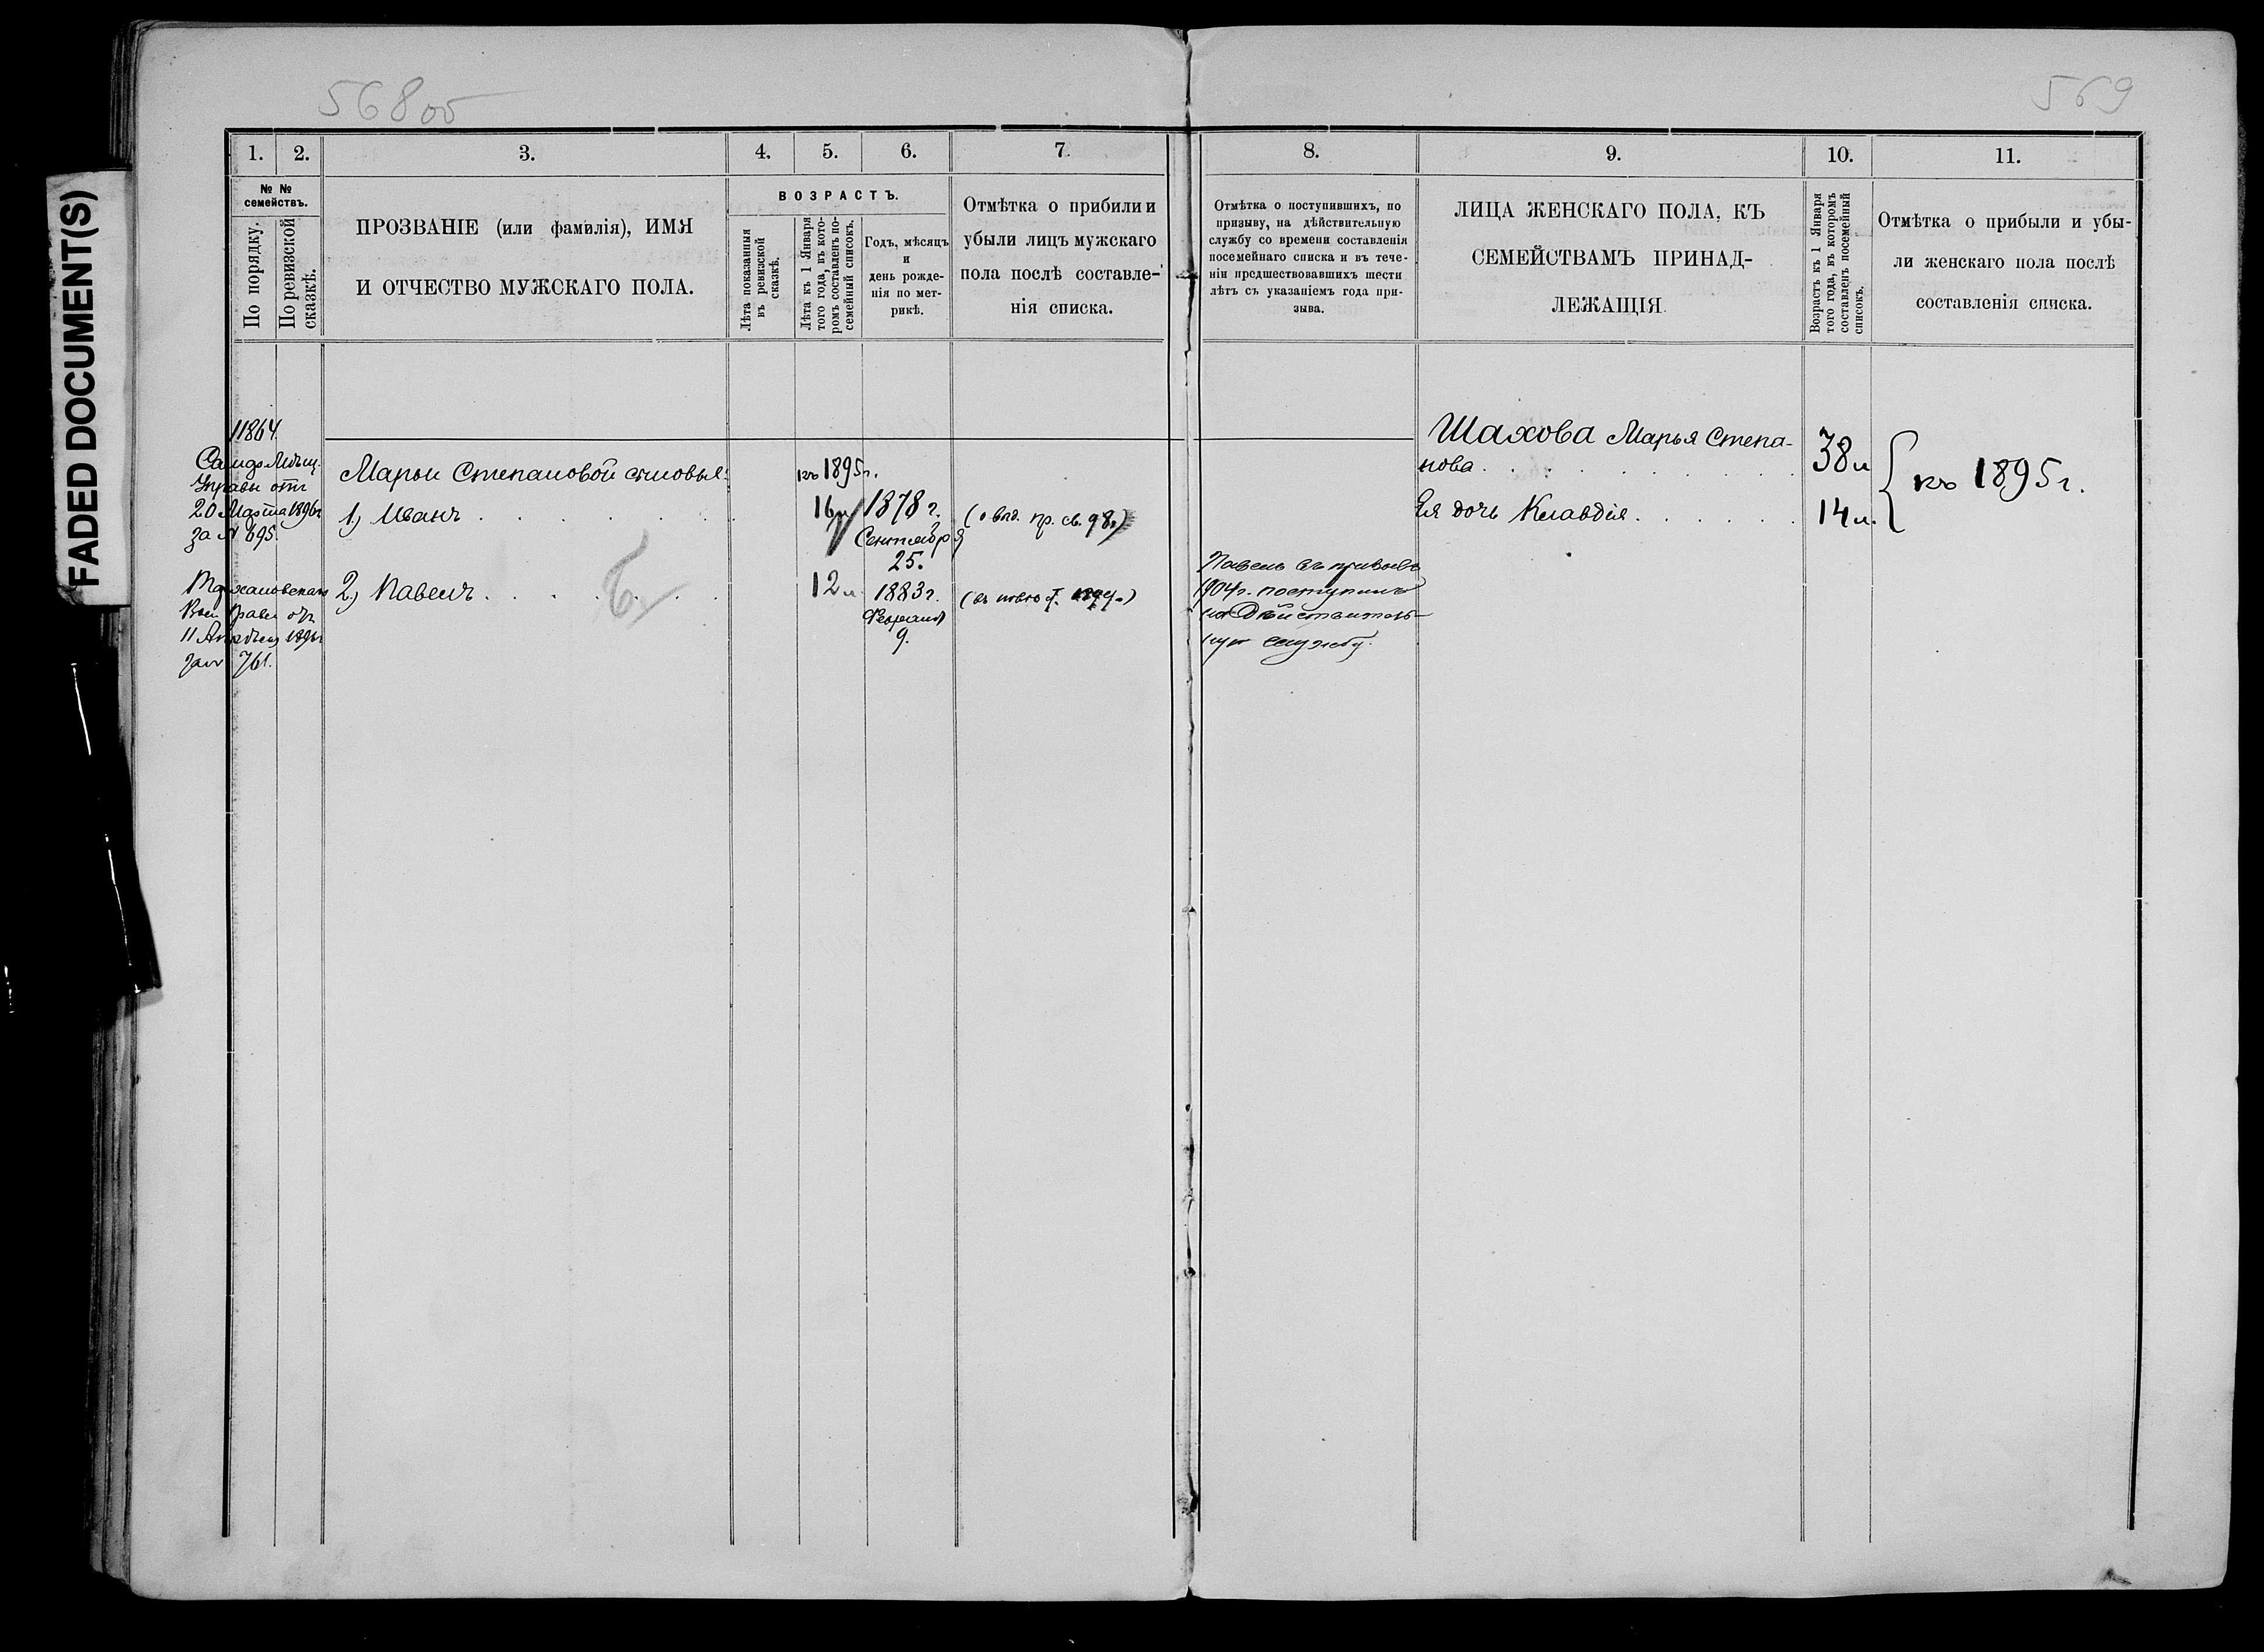 568об
569
FADED DOCUMENT(S)
1. 2. 3. 4. 5. 6. 7. 8. 9. 10. 11.
№ №
семействъ.
По порядку.
По ревизской
сказкѣ.
ПРОЗВАНІЕ (или фамилія), ИМЯ
И ОТЧЕСТВО МУЖСКАГО ПОЛА.
ВОЗРАСТЪ.
Лѣта показанныя
въ ревизской
сказкѣ.
Лѣта къ 1 Января
того года, въ кото-
ромъ составленъ по-
семейный списокъ.
Годъ, мѣсяцъ
и
день рожде-
нія по мет-
рикѣ.
Отмѣтка о прибыли и
убыли лицъ мужскаго
пола послѣ составле-
нія списка.
Отмѣтка о поступившихъ, по
призыву, на дѣйствительную
службу со времени составленія
посемейнаго списка и въ тече-
ніи предшествовавшихъ шести
лѣтъ съ указаніемъ года при-
зыва.
ЛИЦА ЖЕНСКАГО ПОЛА, КЪ
СЕМЕЙСТВАМЪ ПРИНАД-
ЛЕЖАЩІЯ
Возрастъ къ 1 Января
того года, въ которомъ
составленъ посемейный
списокъ.
Отмѣтка о прибыли и убы-
ли женскаго пола послѣ
составленія списка.
11864.
Управы отъ
20 Марта 1896г
за № 695.
11 1896г
за № 761.
Марьи Степановой сыновья:
1) Иванъ
2) Павелъ
къ 1895г.
16л
1878 г.
Сентября
25.
12л.
1883г.
Февраля
9.
пр. св. 98.)
Павелъ въ призывъ
1904г. поступилъ
на Дѣйствитель-
ную службу.
Шахова Марья Степа-
нова
38л
Ея дочь Клавдія
14л.
къ 1895г.